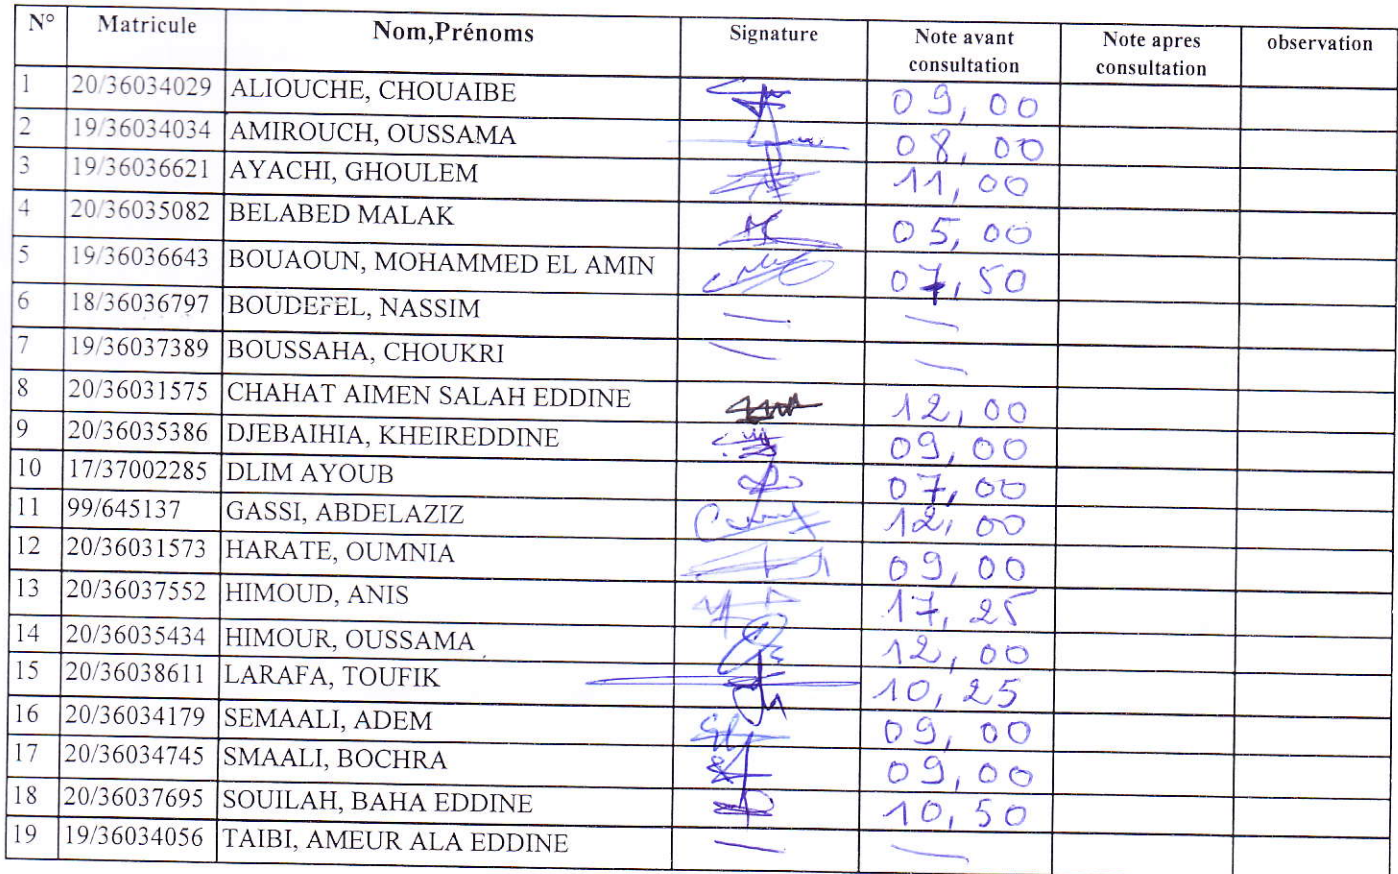 N° Matricule Nom,Prénoms Signature Note avant consultation Note apres consultation observation
1 20/36034029 ALIOUCHE, CHOUAIBE 09,00
2 19/36034034 AMIROUCH, OUSSAMA 08,00
3 19/36036621 AYACHI, GHOULEM 11,00
4 20/36035082 BELABED MALAK 05,00
5 19/36036643 BOUAOUN, MOHAMMED EL AMIN 07,50
6 18/36036797 BOUDEFEL, NASSIM — —
7 19/36037389 BOUSSAHA, CHOUKRI — —
8 20/36031575 CHAHAT AIMEN SALAH EDDINE 12,00
9 20/36035386 DJEBAIHIA, KHEIREDDINE 09,00
10 17/37002285 DLIM AYOUB 07,00
11 99/645137 GASSI, ABDELAZIZ 12,00
12 20/36031573 HARATE, OUMNIA 09,00
13 20/36037552 HIMOUD, ANIS 17,25
14 20/36035434 HIMOUR, OUSSAMA 12,00
15 20/36038611 LARAFA, TOUFIK 10,25
16 20/36034179 SEMAALI, ADEM 09,00
17 20/36034745 SMAALI, BOCHRA 09,00
18 20/36037695 SOUILAH, BAHA EDDINE 10,50
19 19/36034056 TAIBI, AMEUR ALA EDDINE — —